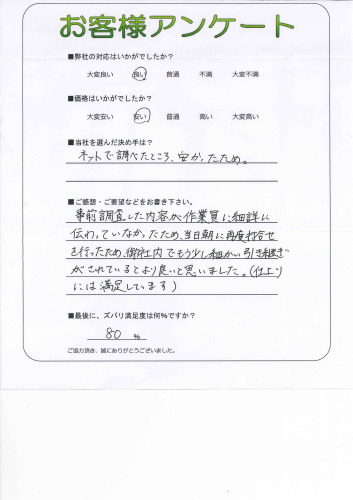 お客様アンケート
■弊社の対応はいかがでしたか？
大変良い 良い 普通 不満 大変不満
■価格はいかがでしたか？
大変安い 安い 普通 高い 大変高い
■当社を選んだ決め手は？
ネットで調べたところ、安かったため。
■ご感想・ご要望などをお書き下さい。
事前調査した内容が作業員に細詳に
伝わっていなかったため、当日朝に再度打合せ
を行ったため、御社内でもう少し細かい引き継ぎ
がされているとより良いと思いました。(仕上り
には満足しています)
■最後に、ズバリ満足度は何％ですか？
80 %
ご協力頂き、誠にありがとうございました。